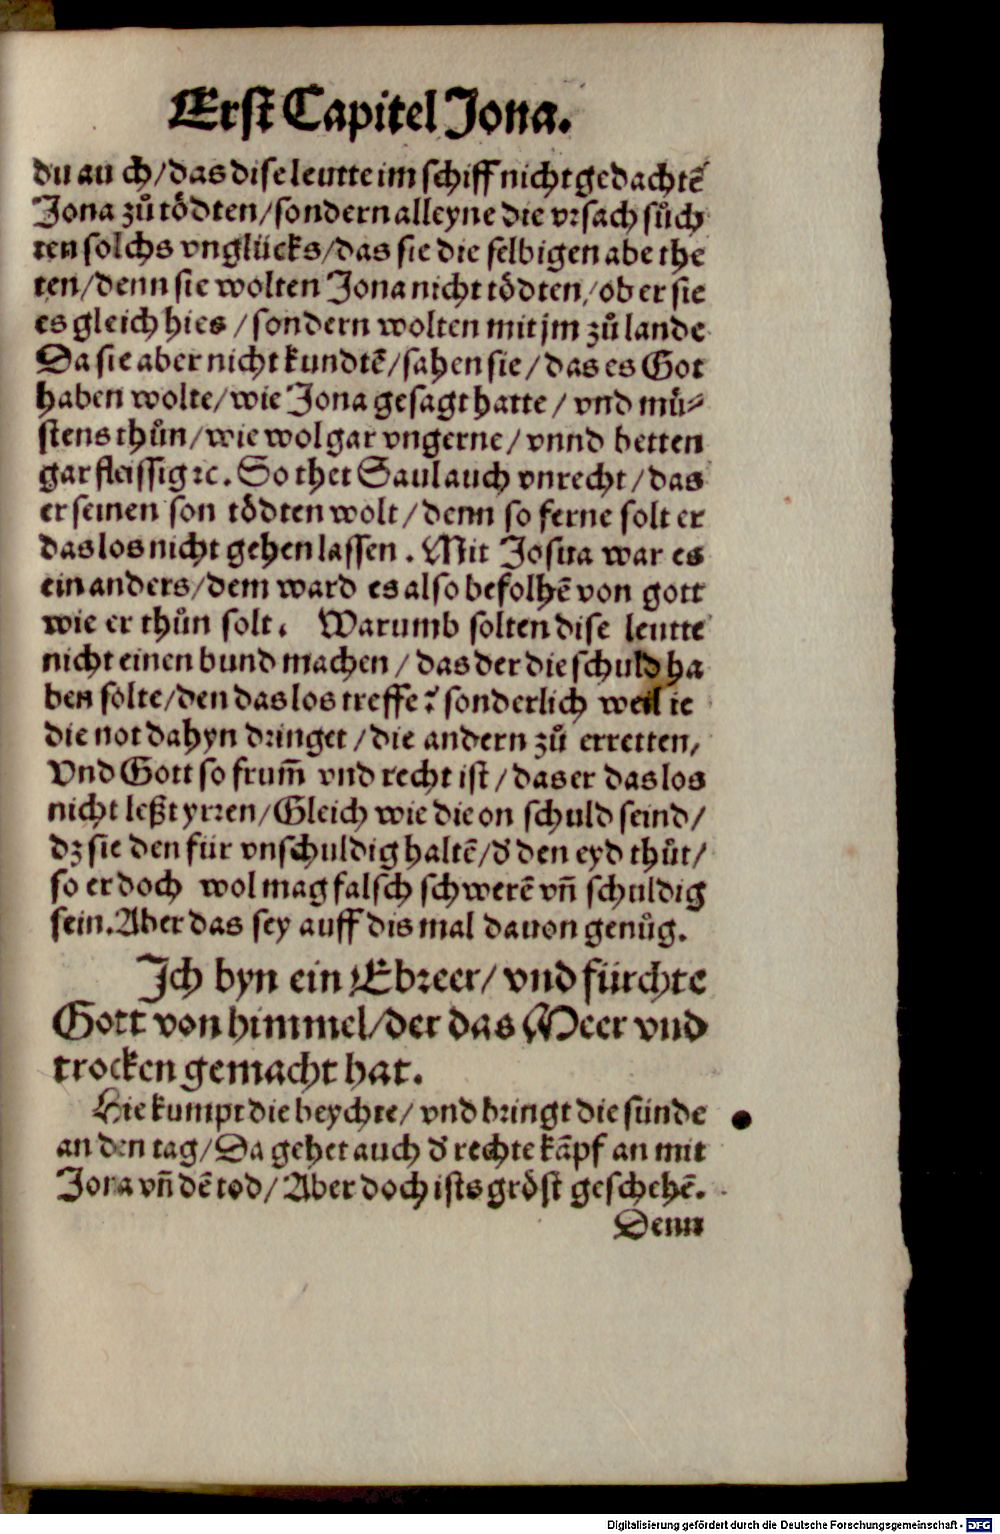 Erst Capitel Jona.
du au ch/das dise leutte im schiff nicht gedachtẽ
Jona zů tödten/sondern alleyne die vrsach sůch
ten solchs vnglücks/das sie die selbigen abe the
ten/denn sie wolten Jona nicht tödten/ob er sie
es gleich hies/sondern wolten mit jm zů lande
Da sie aber nicht kundtẽ/sahen sie/das es Got
haben wolte/wie Jona gesagt hatte/vnd mů⸗
stens thůn/wie wol gar vngerne/vnnd betten
gar fleissig ꝛc. So thet Saul auch vnrecht/das
er seinen son tödten wolt/denn so ferne solt er
das los nicht gehen lassen. Mit Josua war es
ein anders/dem ward es also befolhẽ von gott
wie er thůn solt. Warumb solten dise leutte
nicht einen bund machen/das der die schuld ha
ben solte/den das los treffe? sonderlich weil ie
die not dahyn dringet/die andern zů erretten,
Vnd Gott so frum̃ vnd recht ist/das er das los
nicht leßt yrren/Gleich wie die on schuld seind/
dz sie den für vnschuldig haltẽ/d̕ den eyd thůt/
so er doch wol mag falsch schwerẽ vñ schuldig
sein. Aber das sey auff dis mal dauon genůg.
Ich byn ein Ebreer/vnd fürchte
Gott von himmel/der das Meer vnd
trocken gemacht hat.
Hie kumpt die beychte/vnd bringt die sünde
an den tag/Da gehet auch d̕ rechte kãpf an mit
Jona vñ dẽ tod/Aber doch ists gröst geschehẽ.
Denn
Digitalisierung gefördert durch die Deutsche Forschungsgemeinschaft - DFG